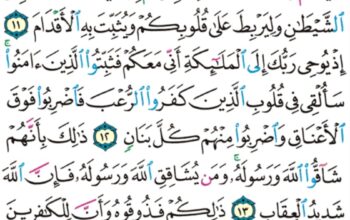 ٱلشَّيْطَٰنِ وَلِيَرْبِطَ عَلَىٰ قُلُوبِكُمْ وَيُثَبِّتَ بِهِ ٱلْأَقْدَامَ ١١
إِذْ يُوحِى رَبُّكَ إِلَى ٱلْمَلَٰٓئِكَةِ أَنِّى مَعَكُمْ فَثَبِّتُوا۟ ٱلَّذِينَ ءَامَنُوا۟
سَأُلْقِى فِى قُلُوبِ ٱلَّذِينَ كَفَرُوا۟ ٱلرُّعْبَ فَٱضْرِبُوا۟ فَوْقَ
ٱلْأَعْنَاقِ وَٱضْرِبُوا۟ مِنْهُمْ كُلَّ بَنَانٍ ١٢ ذَٰلِكَ بِأَنَّهُمْ
شَآقُّوا۟ ٱللَّهَ وَرَسُولَهُۥ وَمَن يُشَاقِقِ ٱللَّهَ وَرَسُولَهُۥ فَإِنَّ ٱللَّهَ
شَدِيدُ ٱلْعِقَابِ ١٣ ذَٰلِكُمْ فَذُوقُوهُ وَأَنَّ لِلْكَٰفِرِينَ